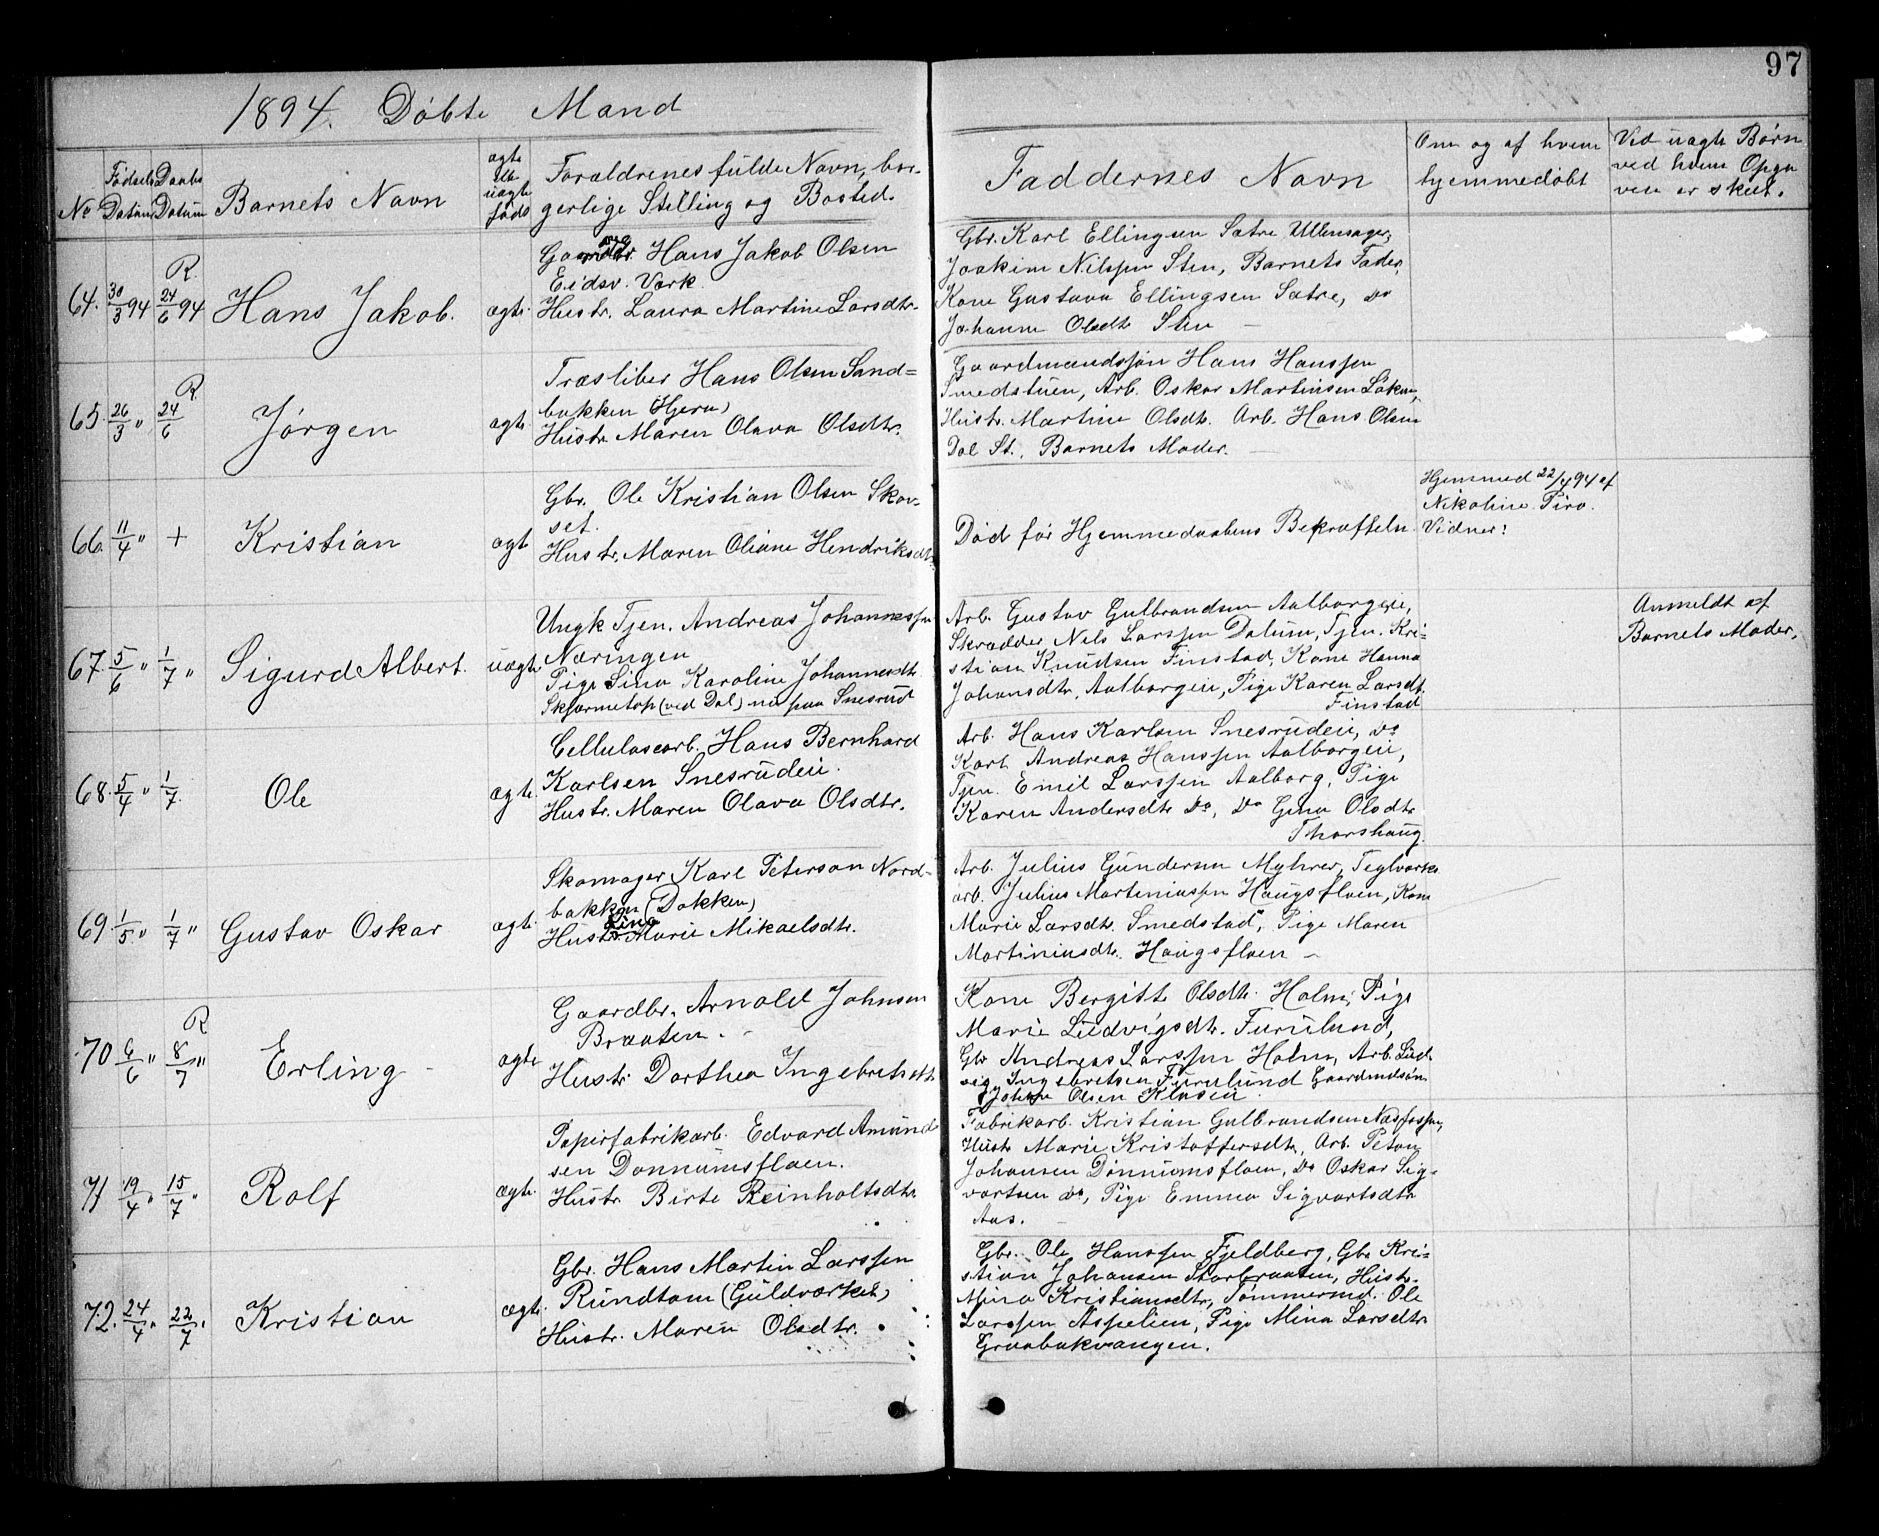 97
1894. Døbte Mand
No
Fødsels Datum
Daabs Datum
Barnets Navn
ægte ell. uægte føds
Forældrenes fulde Navn, bor-
gerlige Stilling og Bosted.
Faddernes Navn
Om og af hvem
hjemmedøbt
Ved uægte Børn
ved hvem Opga
ven er skeet.
64. 30/3 94 R. 24/6 94 Hans Jakob. ægte.
Hans Jakob Olsen
Eidsv. Værk.
Hustr. Laura Martine Larsdtr.
Gbr. Karl Ellingsen Sætre Ullensager,
Joakim Nilssen Sten, Barnets Fader,
Kone Gustava Ellingsen Sætre, Do
Johanne Olsdtr Sten —
65. 26/3 " R 24/6 Jørgen ægte.
Træsliber Hans Olsen Sand=
bakken (Hjera)
Hustr. Maren Olava Olsdtr.
Gaardmandssøn Hans Hanssen
Smedstuen, Arb. Oskar Martinsen Løken,
Hustr. Martine Olsdtr. Arb. Hans Olsen
Dal St., Barnets Moder. —
66. 11/4 " + Kristian ægte
Gbr. Ole Kristian Olsen Skov-
set.
Hustr. Maren Oliane Hendriksdtr.
Død før Hjemmedaabens Bekræfteln.
Hjemmed 22/4 94 af
Nikoline Piro.
Vidner:
67. 5/6 " 1/7 " Sigurd Albert. uægte
Ungk Tjen. Andreas Johannessen
Næringen
Pige Lina Karoline Johannesdtr
Skjærmetop (ved Dal) nu paa Snesrud
Arb. Gustav Gulbrandsen Aalborgeie,
Skrædder Nils Larssen Dalum, Tjen. Kri=
stian Knudsen Finstad, Kone Hanna
Johansdtr. Aalborgeie, Pige Karen Larsdtr.
Finstad
Anmeldt af
Barnets Moder.
68. 5/4 " 1/7. Ole ægte.
Cellulosearb. Hans Bernhard
Karlsen Snesrudeie.
Hustr. Maren Olava Olsdtr.
Arb. Hans Karlsen Snesrudeie, Do
Karl Andreas Hanssen Aalborgeie,
Tjen. Emil Larssen Aalborg, Pige
Karen Andersdtr Do, Do Gina Olsdtr
Thorshaug.
69. 1/5 " 1/7 " Gustav Oskar ægte.
Skomager Karl Peterson Nord-
bakken (Dokken)
Lina
Hustr. Marie Mikaelsdtr.
Arb. Julius Gundersen Myhrer, Teglværks
arb. Julius Martiniussen Haugsfloen, Kone
Marie Larsdtr. Smedstad, Pige Maren
Martiniusdtr. Haugsfloen —
70 6/6 " R 8/7 " Erling ægte
Gaardbr. Arnold Johnsen
Braaten.
Hustr Dorthea Ingebretsdtr
Kone Bergitte Olsdtr. Holm, Pige
Marie Ludvigsdtr. Furulund,
Gbr Andreas Larssen Holm, Arb. Lud-
vig Ingebretsen Furulund Gaardmdsøn
Johan Olsen
71 19/4 " 15/7 " Rolf ægte.
Papirfabrikarb. Edvard Amund
sen Dønnumsfloen.
Hustr Birte Reinholtsdtr
Fabrikarb. Kristian Gulbrandsen Næsfossen,
Hustr Marie Kristoffersdtr, Arb.
Johansen Dønnumsfloen, Do Oskar Sig-
vartsen do, Pige Emma Sigvartsdtr
Aas.
72. 24/4 " 22/7 " Kristian ægte.
Gbr. Hans Martin Larssen
Rundtom (Guldværket)
Hustr. Maren Olsdtr.
Gbr. Ole Hanssen Fjeldberg, Gbr Kri=
stian Johansen Storbraaten, Hustr.
Mina Kristiansdtr, Tømmermd. Ole
Larssen Aspelien, Pige Mina Larsdtr
Graabakvangen.